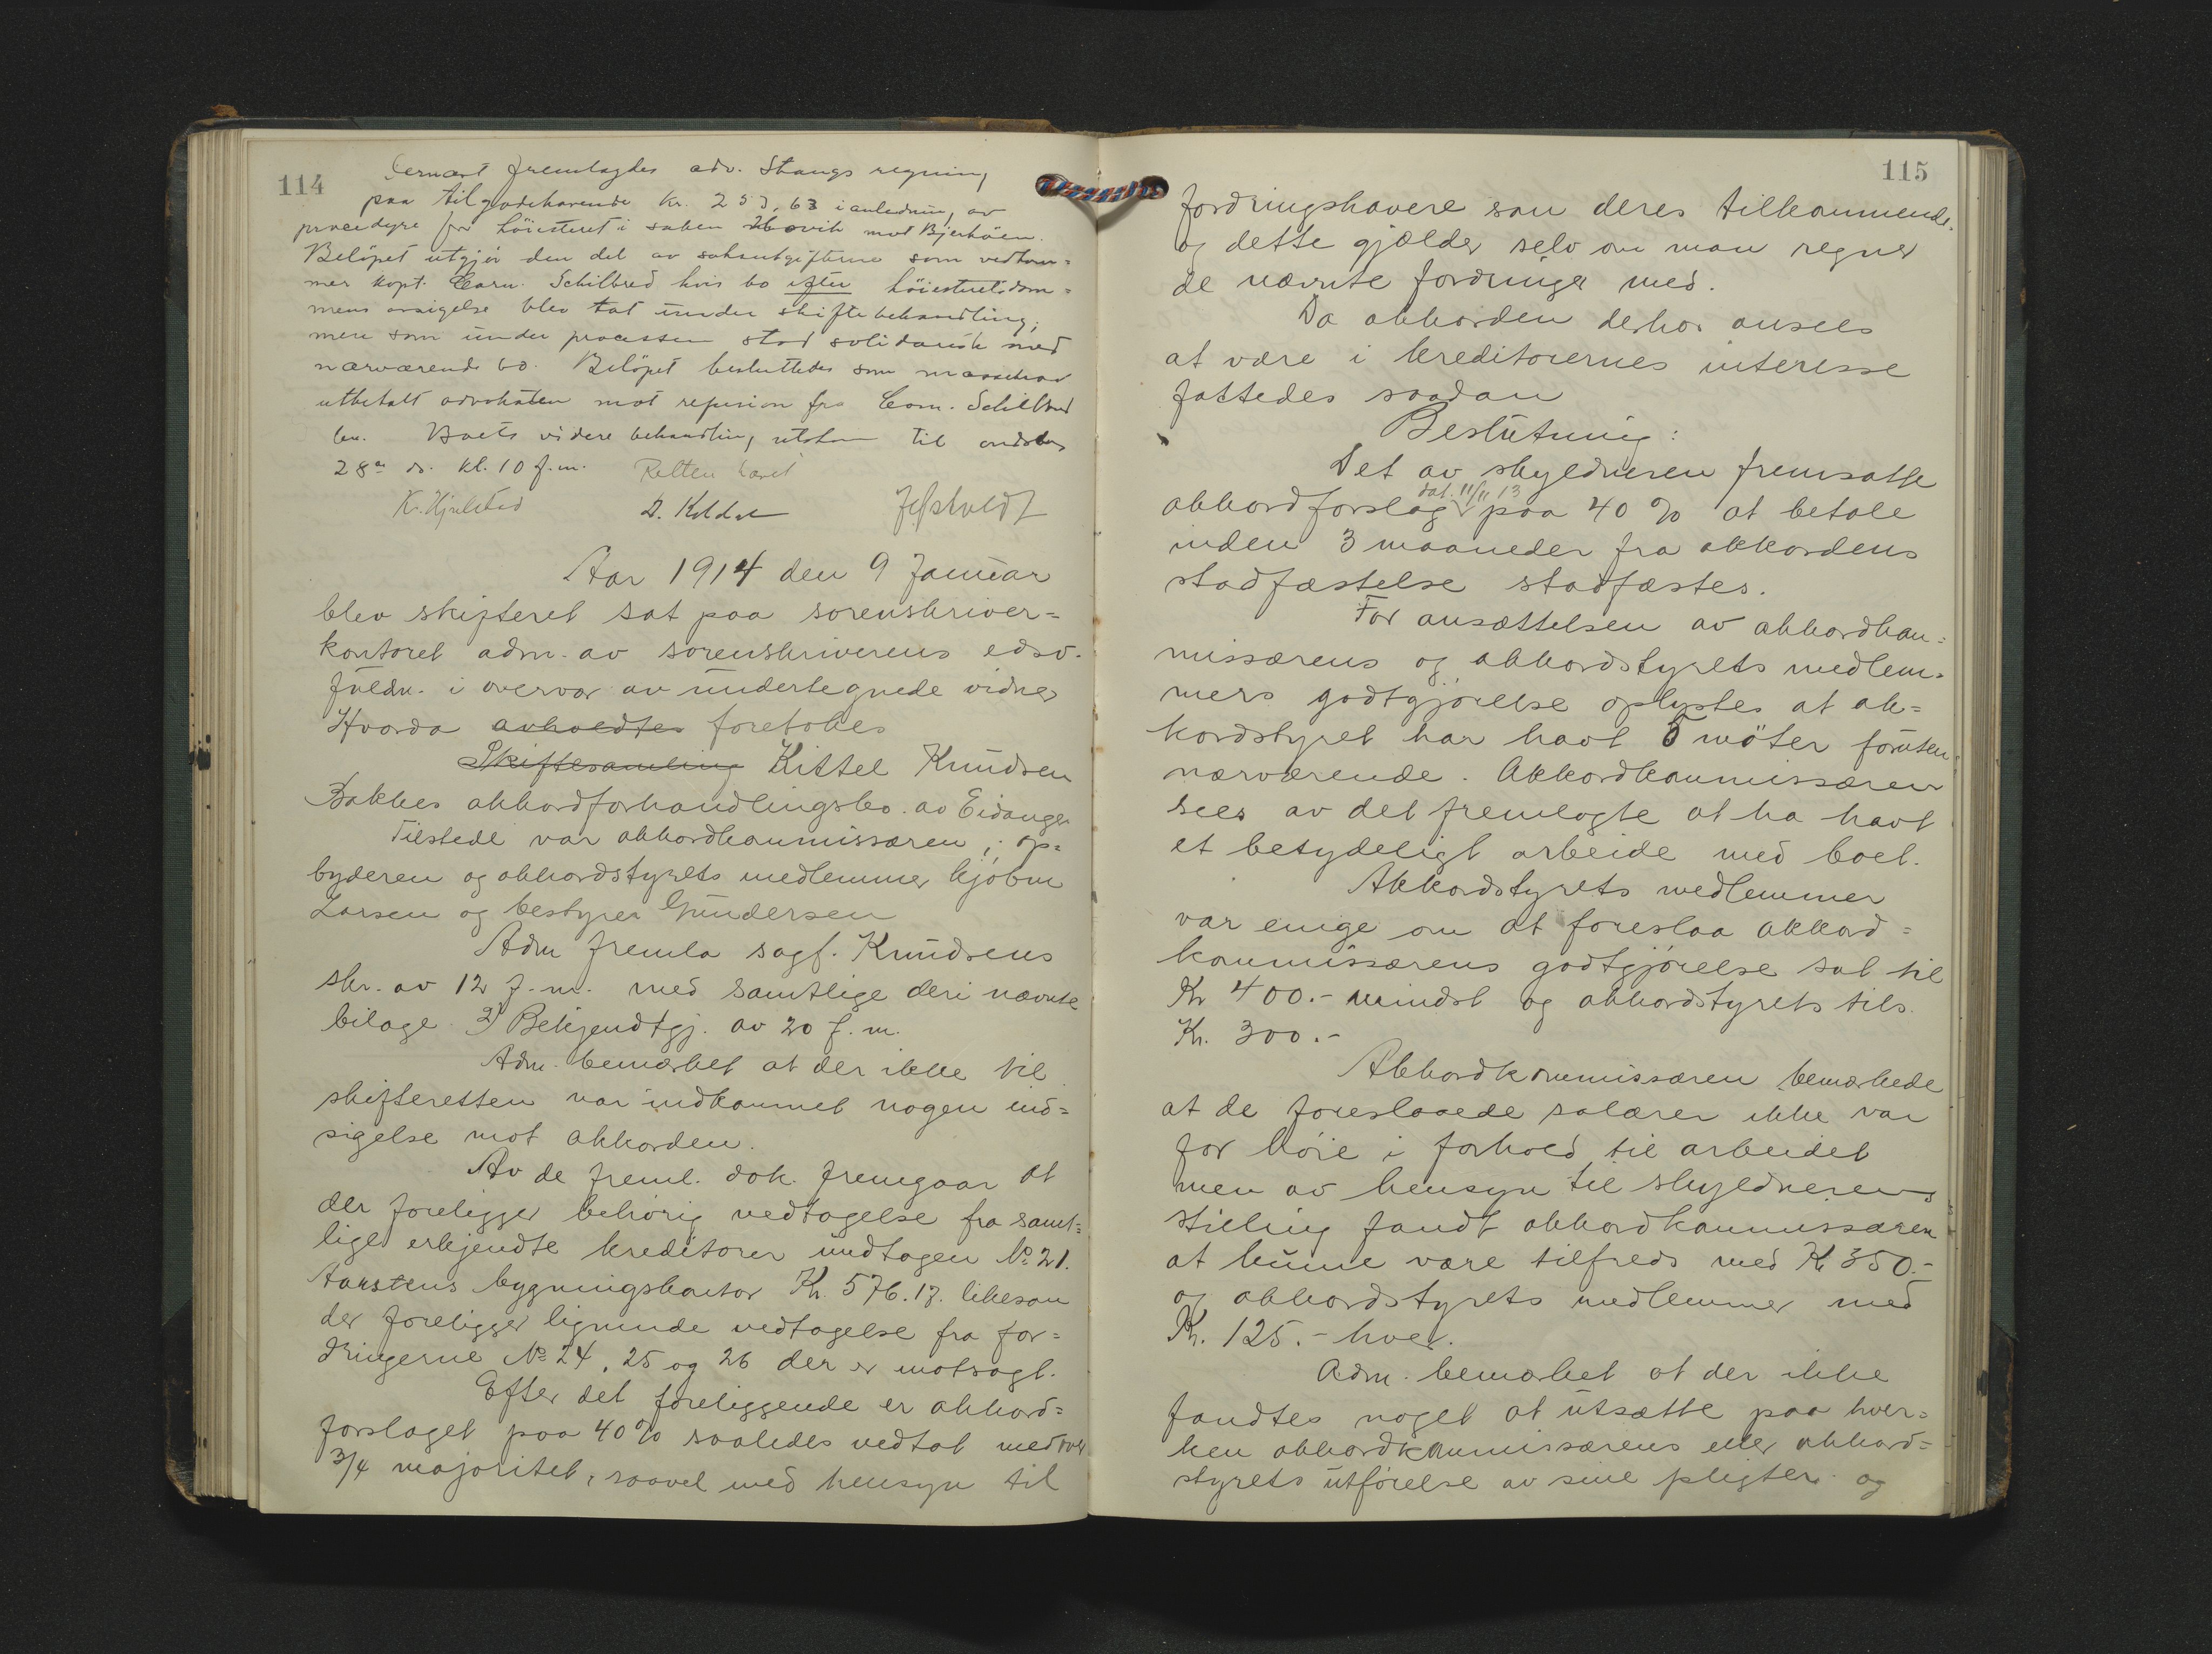 114
Dernæst fremlagdes adv. Stangs regning
paa tilgodehavende Kr. 253,63 i anledning av
procedyre for höiesteret i saken mot Bjerköen.
Belöpet utgjör den del av saksutgifterne som vedkom=
mer kapt. Corn. Schilbred hvis bo efter höiesteretsdom=
mens avsigelse blev tat under skiftebehandling,
men som under processen stod solidarisk med
nærværende bo. Belöpet besluttedes som massekrav
utbetalt advokaten mot refusion fra Corn. Schilbred
bo. Boets videre behandling utstaar til onsdag
28de ds. kl. 10 f.m. Retten hævet
K. Hjulstad
Aar 1914 den 9 Januar
blev skifteret sat paa sorenskriver=
kontoret adm. av sorenskriverens edsv.
fuldm. i overvær av undertegnede vidner
Hvorda avholdtes foretokes
Skiftesamling Kittel Knudsen
Bakkes akkordforhandlingsbo av Eidanger
Tilstede var akkordkommissæren, op=
byderen og akkordstyrets medlemmer kjøbm
Larsen og bestyrer Gundersen
Adm fremla sagf. Knudsens
skr. av 12 f.m. med samtlige deri nævnte
bilage. 2) Bekjendtgj. av 20 f.m.
Adm. bemærket at der ikke til
skifteretten var indkommet nogen ind=
sigelse mot akkorden.
Av de freml. dok. fremgaar at
der foreligger behørig vedtagelse fra samt=
lige erkjendte kreditorer undtagen No 21.
Aarstens bygningskontor Kr. 576.17. likesom
der foreligger lignende vedtagelse fra for=
dringerne No 24, 25 og 26 der er motsagt.
Efter det foreliggende er akkord=
forslaget paa 40% saaledes vedtat med over
3/4 majoritet, saavel med hensyn til
115
fordringshavere som deres tilkommende.
og dette gjælder selv om man regner
de nævnte fordringer med.
Da akkorden derhos ansees
at være i kreditorernes interesse
fattedes saadan
Beslutning:
Det av skyldneren fremsatte
akkordforslag dat. 11/11 13 paa 40% at betale
inden 3 maaneder fra akkordens
stadfæstelse stadfæstes.
For ansættelsen av akkordkom=
missærens og akkordstyrets medlem=
mers godtgjørelse oplystes at ak=
kordstyret har havt 5 møter foruten
nærværende. Akkordkommissæren
sees av det fremlagte at ha havt
et betydeligt arbeide med boet.
Akkordstyrets medlemmer
var enige om at foreslaa akkord=
kommissærens godtgjørelse sat til
Kr 400.- mindst og akkordstyrets tils.
Kr. 300.-
Akkordkommissæren bemærkede
at de foreslaaede salærer ikke var
for høie i forhold til arbeidet
men av hensyn til skyldnerens
stilling fandt akkordkommissæren
at kunne være tilfreds med Kr 350.-
og akkordstyrets medlemmer med
Kr. 125.- hver.
Adm. bemærket at der ikke
fandtes noget at utsætte paa hver=
ken akkordkommissærens eller akkord=
styrets utførelse av sine pligter og